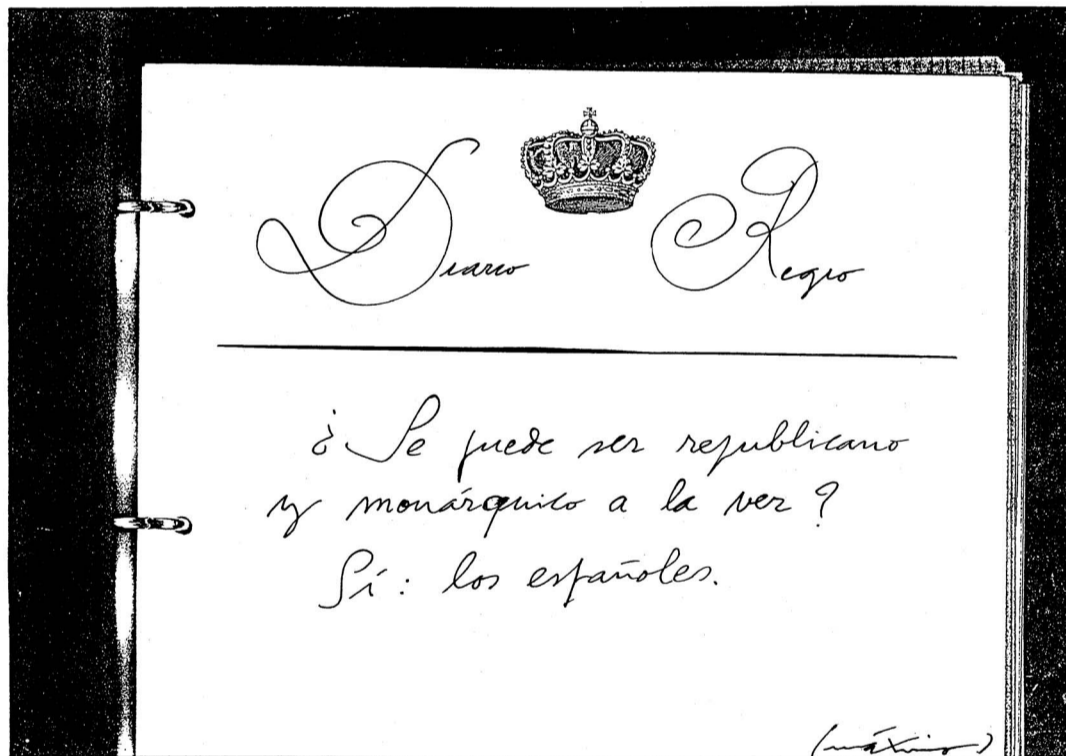 Diario Regio
¿Se puede ser republicano
y monárquico a la vez?
Sí: los españoles.
(máximo)